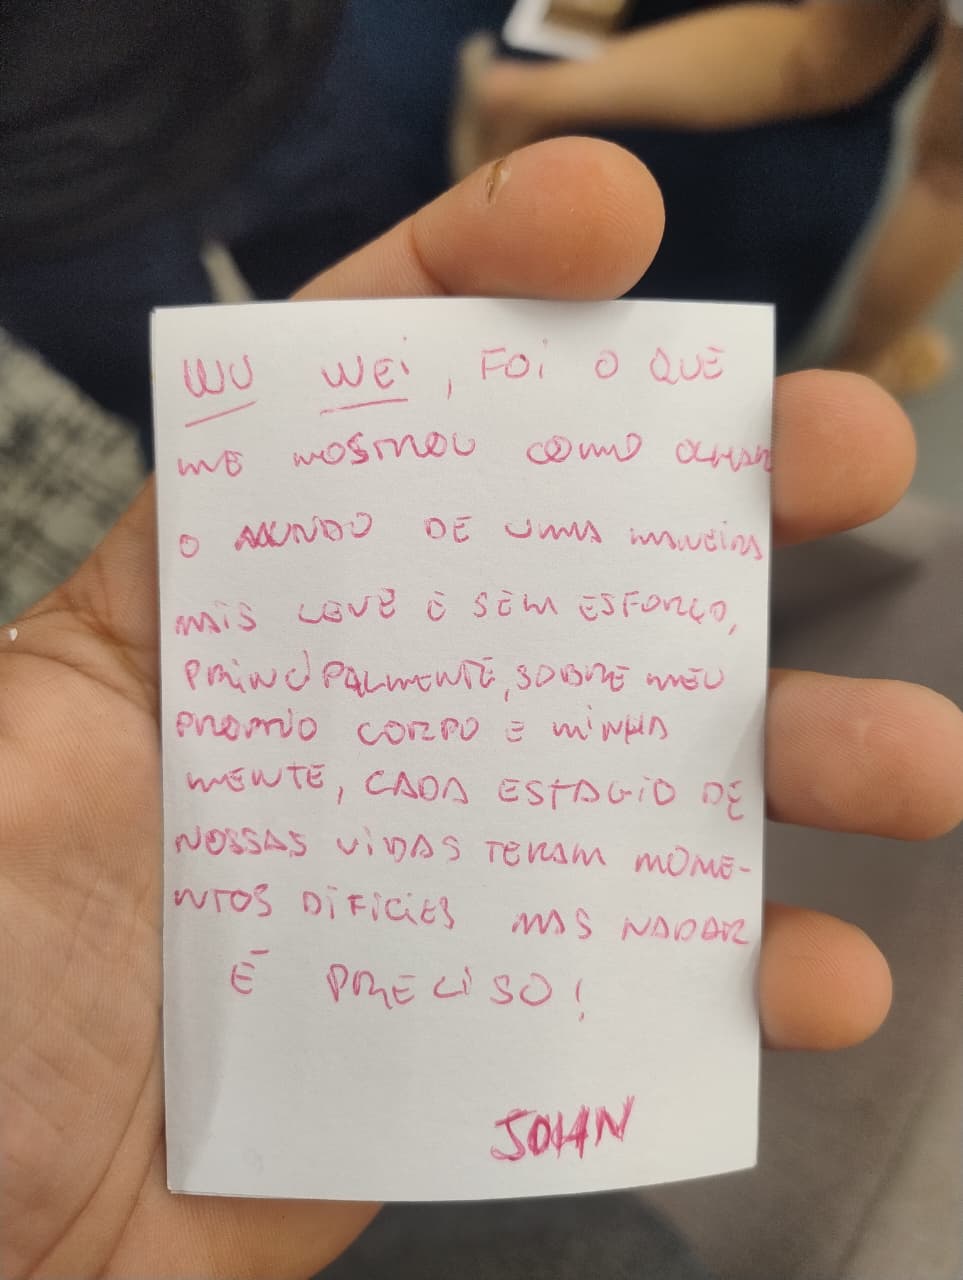 WU WEI, FOI O QUE
ME MOSTROU COMO OLHAR
O MUNDO DE UMA MANEIRA
MAIS LEVE E SEM ESFORÇO,
PRINCIPALMENTE, SOBRE MEU
PROPRIO CORPO E MINHA
MENTE, CADA ESTAGIO DE
NOSSAS VIDAS TERAM MOME-
NTOS DIFICIES MAS NADAR
É PRECISO!
JOHN